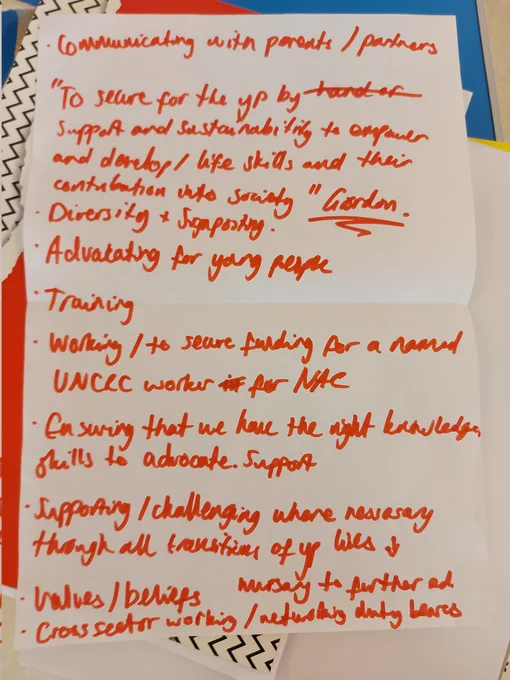 · Communicating with parents / partners
"To secure for the yp by hand or
support and sustainability to empower
and develop / life skills and their
contribution into society" Gordon.
· Diversity + Signposting.
· Advocating for young people
· Training
· Working / to secure funding for a named
UNCRC worker for NAC
· Ensuring that we have the right knowledge,
skills to advocate. Support
· Supporting / challenging where necessary
through all transitions of yp lives ↓
nursery to further ed
· Values / beliefs
· Cross sector working / networking duty bearers